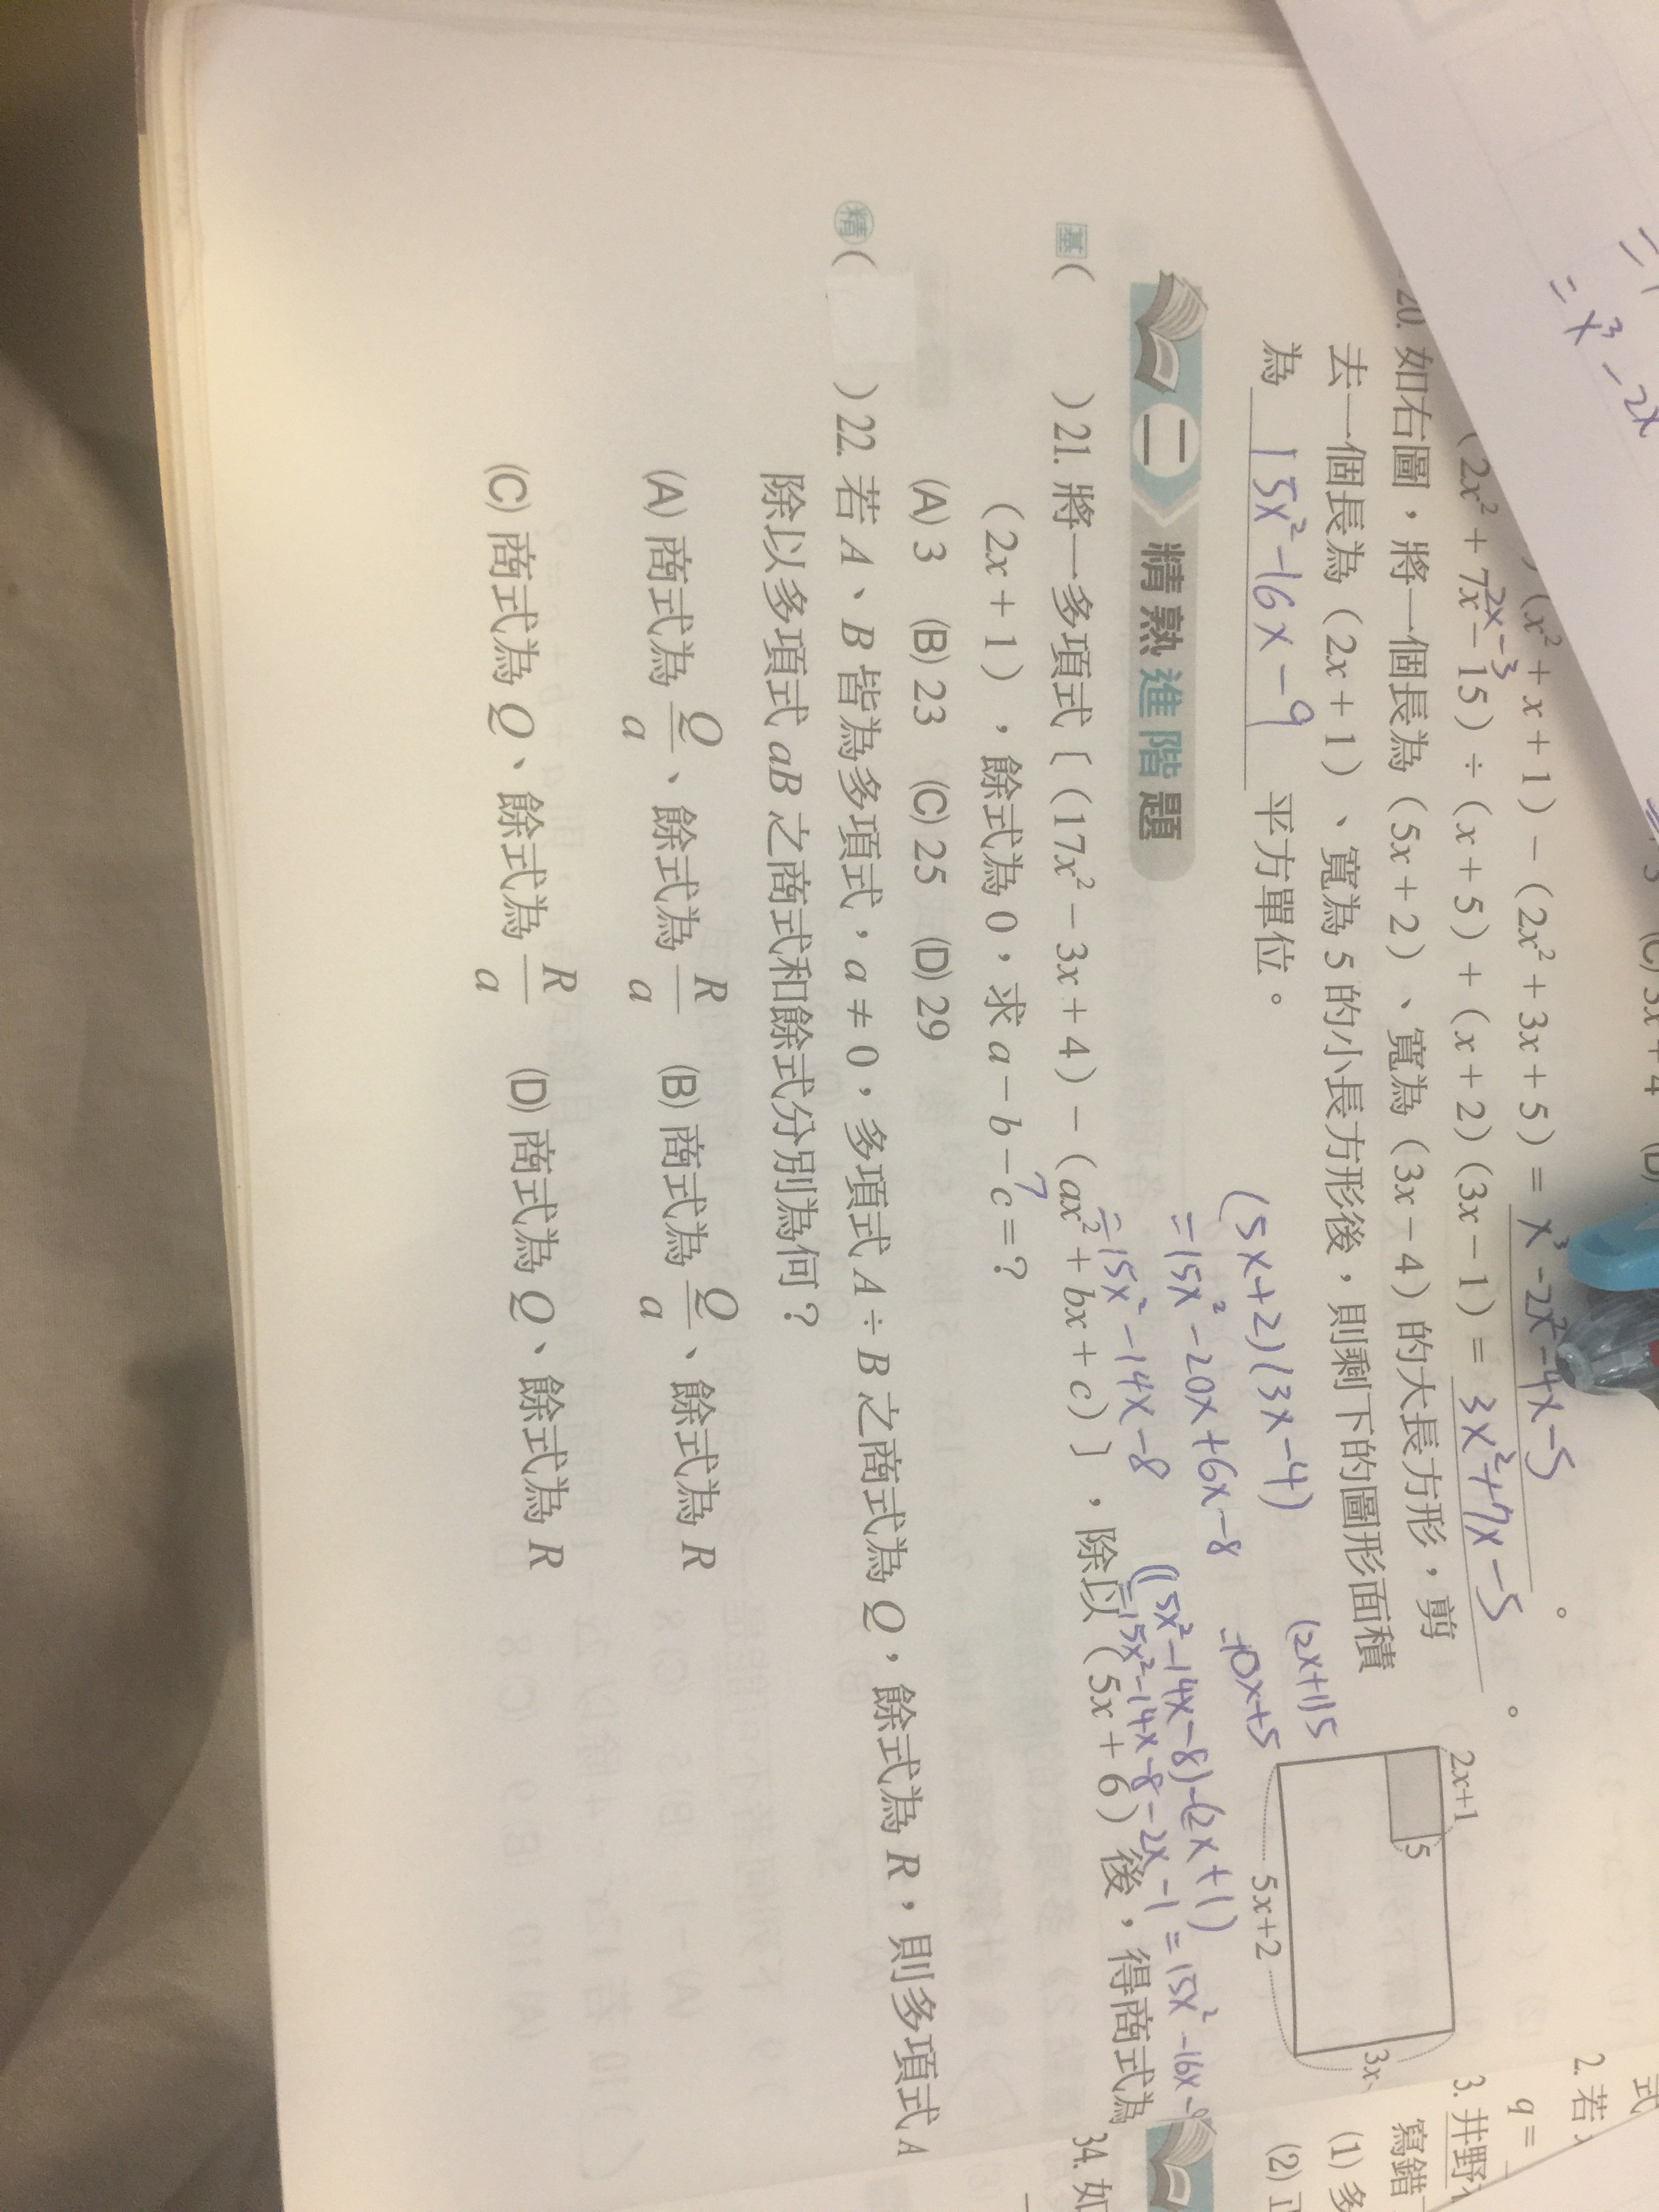 = x³ - 2x
(x² + x + 1) - (2x² + 3x + 5) = x³ - 2x² - 4x - 5 。
2x - 3
(2x² + 7x - 15) ÷ (x + 5) + (x + 2)(3x - 1) = 3x² + 7x - 5 。
20. 如右圖,將一個長為(5x + 2)、寬為(3x - 4)的大長方形,剪
去一個長為(2x + 1)、寬為 5 的小長方形後,則剩下的圖形面積
為 15x² - 16x - 9 平方單位。
2x+1
5
5x+2
3x-
(5x+2)(3x-4)
= 15x² - 20x + 6x - 8
= 15x² - 14x - 8
(2x+1)5
= 10x+5
(15x² - 14x - 8) - (2x + 1)
= 15x² - 14x - 8 - 2x - 1 = 15x² - 16x - 9
二 精熟進階題
基( )21. 將一多項式〔(17x² - 3x + 4) - (ax² + bx + c)〕,除以(5x + 6)後,得商式為
(2x + 1),餘式為 0,求 a - b - c = ?
7
(A) 3 (B) 23 (C) 25 (D) 29
精( )22. 若 A、B 皆為多項式,a ≠ 0,多項式 A ÷ B 之商式為 Q,餘式為 R,則多項式 A
除以多項式 aB 之商式和餘式分別為何?
(A) 商式為 Q/a、餘式為 R/a (B) 商式為 Q/a、餘式為 R
(C) 商式為 Q、餘式為 R/a (D) 商式為 Q、餘式為 R
式
2. 若
q =
3. 井野
寫錯
(1) 多
(2) 正
34. 如